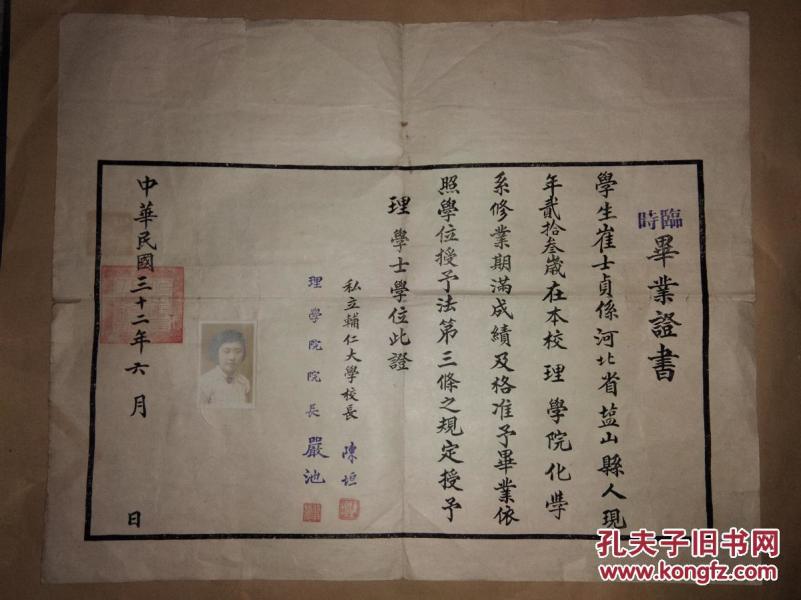 臨時畢業證書
學生崔士貞係河北省塩山縣人現
年貳拾叁歲在本校理學院化學
系修業期滿成績及格准予畢業依
照學位授予法第三條之規定授予
理學士學位此證
私立輔仁大學校長 陳垣
理學院院長 嚴池
中華民國三十二年六月 日
孔夫子旧书网
www.kongfz.com